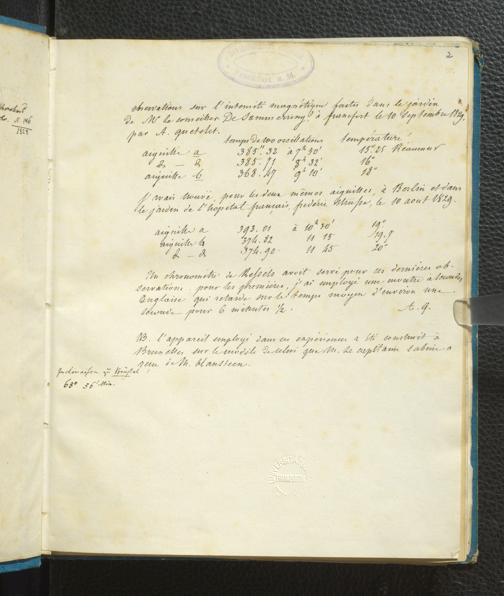 2
observations sur l'intensité magnétique faites dans le jardin
de Mr le conseiller De Sömmerring, à francfort le 10 Septembre 1829.
par A. Quetelet.
temps de 100 oscillations température
aiguille a 385".32 à 7h 30' 15°.25 Réaumur
2 — a 385.71 8h 32' 16°
aiguille b 368.47 9h 10' 18°
J'avais trouvé, pour les deux mêmes aiguilles, à Berlin et dans
le jardin de l'hopital français, frederic Strasse, le 10 aout 1829.
aiguille a 393.01 à 10h 30' 19°
aiguille b 374.82 11 15 19.8
2 — 374.90 11 45 20°
Un chronomètre de Kessels avoit servi pour ces dernières ob-
servations. pour les premières, j'ai employé une montre à secondes
Anglaise qui retarde sur le temps moyen d'environ une
seconde pour 6 minutes ½.
A. Q.
NB. l'appareil employé dans ces expériences a été construit à
Bruxelles sur le modèle de celui que M. le capitaine Sabine a
reçu de M. Hansteen.
Inclination zu Brüssel
68° 56' Min.